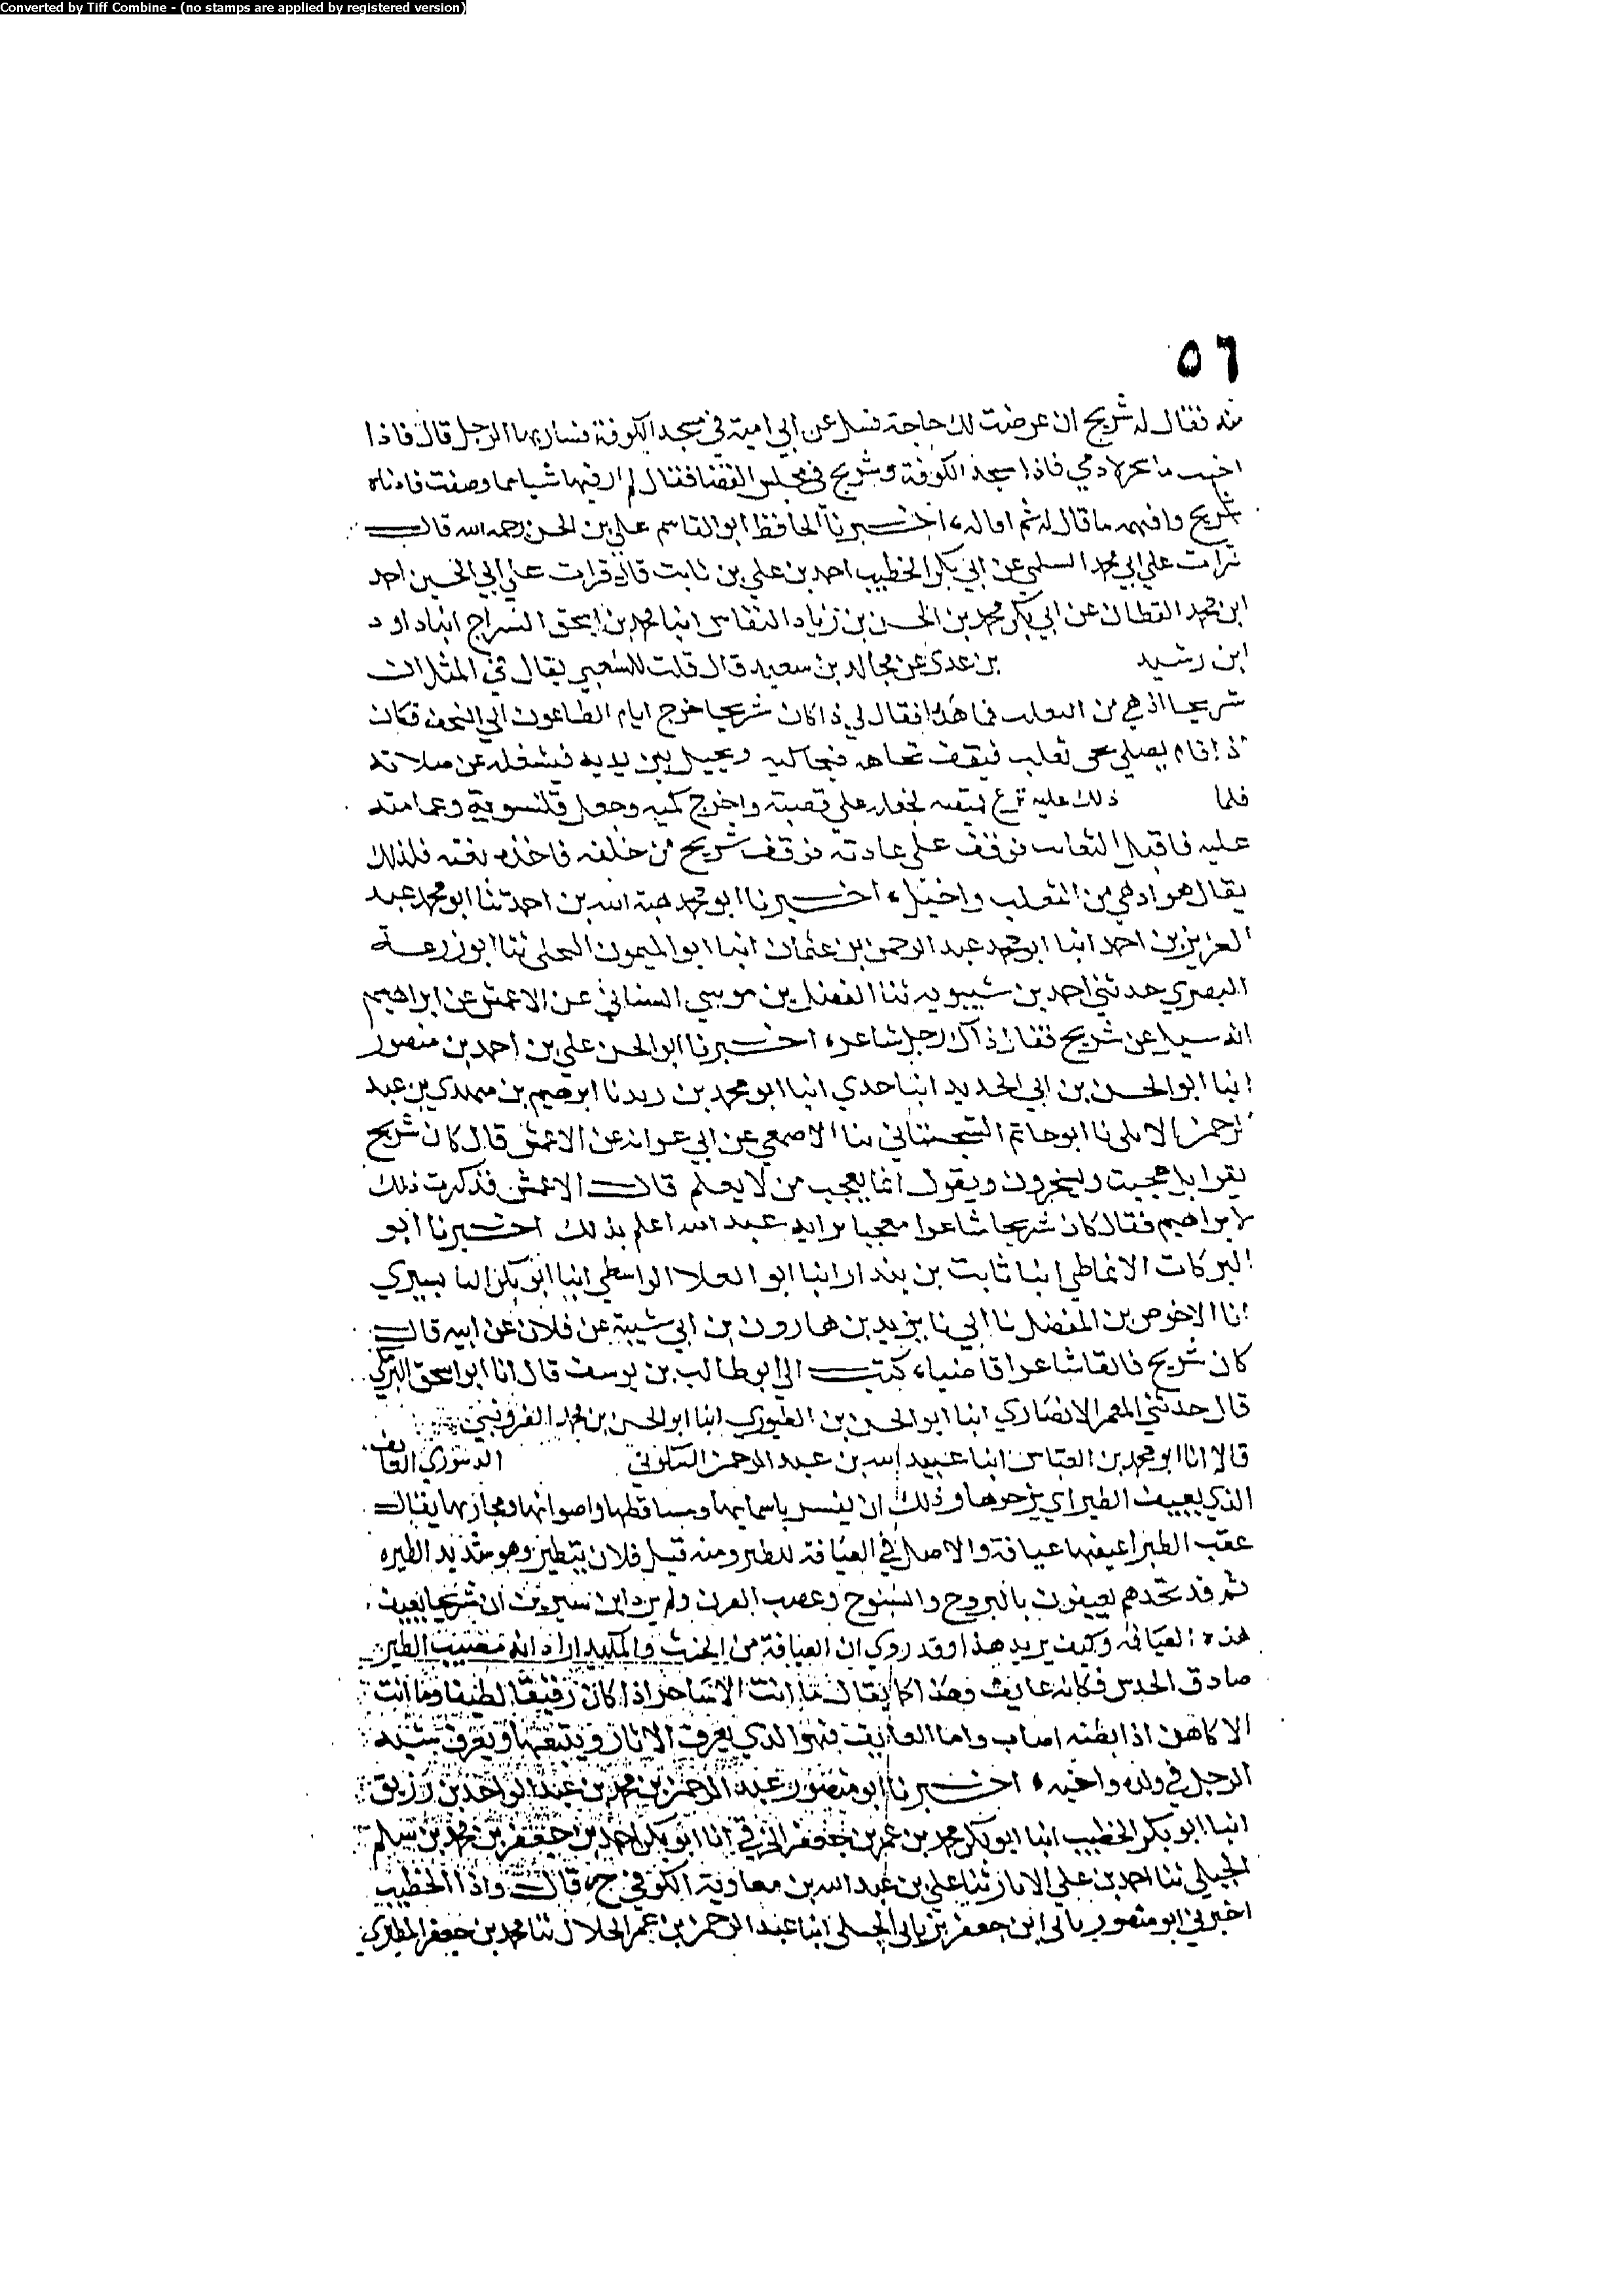 Converted by Tiff Combine - (no stamps are applied by registered version)
٥٦
منه فقال له شريح ان عرضت لك حاجة فسل عن ابي امية في مسجد الكوفة فسار بها الرجل قال فاذا
فاذا مسجد الكوفة وشريح في مجلس القضا فقال لم ار فيها شيا مما وصفت فادناه
شريح وافهمه ما قال له ثم اخبرنا الحافظ ابو القاسم علي بن الحسن رحمه الله قال
قرات علي ابي محمد السلمي عن ابي بكر الخطيب احمد بن علي بن ثابت قال قرات علي ابي الحسين احمد
ابن محمد القطان عن ابي بكر محمد بن الحسن بن زياد النقاس انبا محمد بن اسحق السراج انبا داود
ابن رشيد بن عدي عن مجالد بن سعيد قال قلت للشعبي يقال في المثل ان
شريحا ادهي من الثعلب فما هذا فقال لي ذا كان شريحا خرج ايام الطاعون الي النجف فكان
اذا قام يصلي ثعلب فيقف تجاهه فيحاكيه ويخيل بين يديه فيشغله عن صلاته
فلما ذلك عليه نزع قميصه فجعله علي قصبة واخرج كميه وجعل قلنسوية وعمامته
عليه فاقبل الثعلب فوقف علي عادته فوقف شريح من خلفه فاخذه بغته فلذلك
يقال هو ادهي من الثعلب واخيل، اخبرنا ابو محمد هبة الله بن احمد ثنا ابو محمد عبد
العزيز بن احمد انبا ابو محمد عبد الرحمن بن عثمان انبا ابو الميمون البجلي ثنا ابو زرعة
البصري حدثني احمد بن شيبويه ثنا الفضل بن موسي السيناني عن الاعمش عن ابراهيم
انه سيل عن شريح فقال ذاك رجل شاعر، اخبرنا ابو الحسن علي بن احمد بن منصور
انبا ابو الحسن بن ابي الحديد انبا جدي انبا ابو محمد بن نا ابرهيم بن مهدي بن عبد
الرحمن الابلي نا ابو حاتم السجستاني نا الاصمعي عن ابي عوانه عن الاعمش قال كان شريح
يقرا بل عجبت ويسخرون ويقول انما يعجب من لا يعلم قال الاعمش فذكرت ذلك
لابراهيم فقال كان شريحا شاعرا معجبا برايه عبد الله اعلم بذلك اخبرنا ابو
البركات الانماطي انبا ثابت بن بندار انبا ابو العلا الواسطي انبا ابو بكر البابسيري
انا الاحوص بن المفضل نا ابي نا يزيد بن هارون بن ابي شيبة عن فلان عن ابيه قال
كان شريح قائفا شاعرا قاضيا، كتب الي ابو طالب بن يوسف قال انا ابو اسحق البرمكي
قال حدثني المعمر الانصاري انبا ابو الحسن بن الطيوري انبا ابو الحسن بن محمد القزويني
قالا انا ابو محمد بن العباس انبا عبيد الله بن عبد الرحمن السكوني الدينوري القايف
الذي يعيف الطير اي يزجرها وذلك ان يفسر باسمايها ومساقطها واصواتها ومجازيها يقال
الطير اعيفها عيافة والاصل في العيافة للطير ومنه قيل فلان يتطير وهو شديد الطيره
ثم قد تجدهم يعيفون بالبروح والسنوح ولم يرد ابن سيرين ان شريحا يعيف
هذه العيافه وكيف يريد هذا وقد روي ان العيافة من الجبت اراد انه الطير
صادق الحدس فكانه عايف وهذا كما يقال ما انت الا ساحر اذا كان رفيقا لطيفا وما انت
الا كاهن اذا بظنه اصاب واما العايف فهو الذي يعرف الاثار ويتبعها ويعرف شبه
الرجل في ولده واخيه، اخبرنا ابو منصور عبد الرحمن بن محمد بن عبد الواحد بن زريق
انبا ابو بكر الخطيب انبا ابو بكر محمد بن عمر بن جعفر الخرقي انا ابو بكر احمد بن جعفر بن محمد بن سلم
الجيلي ثنا احمد بن علي الابار ثنا علي بن عبد الله بن معاوية الكوفي ح، قال واذا الخطيب
اخبرني ابو منصور باي ابن جعفر بن باي الجيلي انبا عبد الرحمن بن عمر الخلال ثنا محمد بن جعفر المطيري